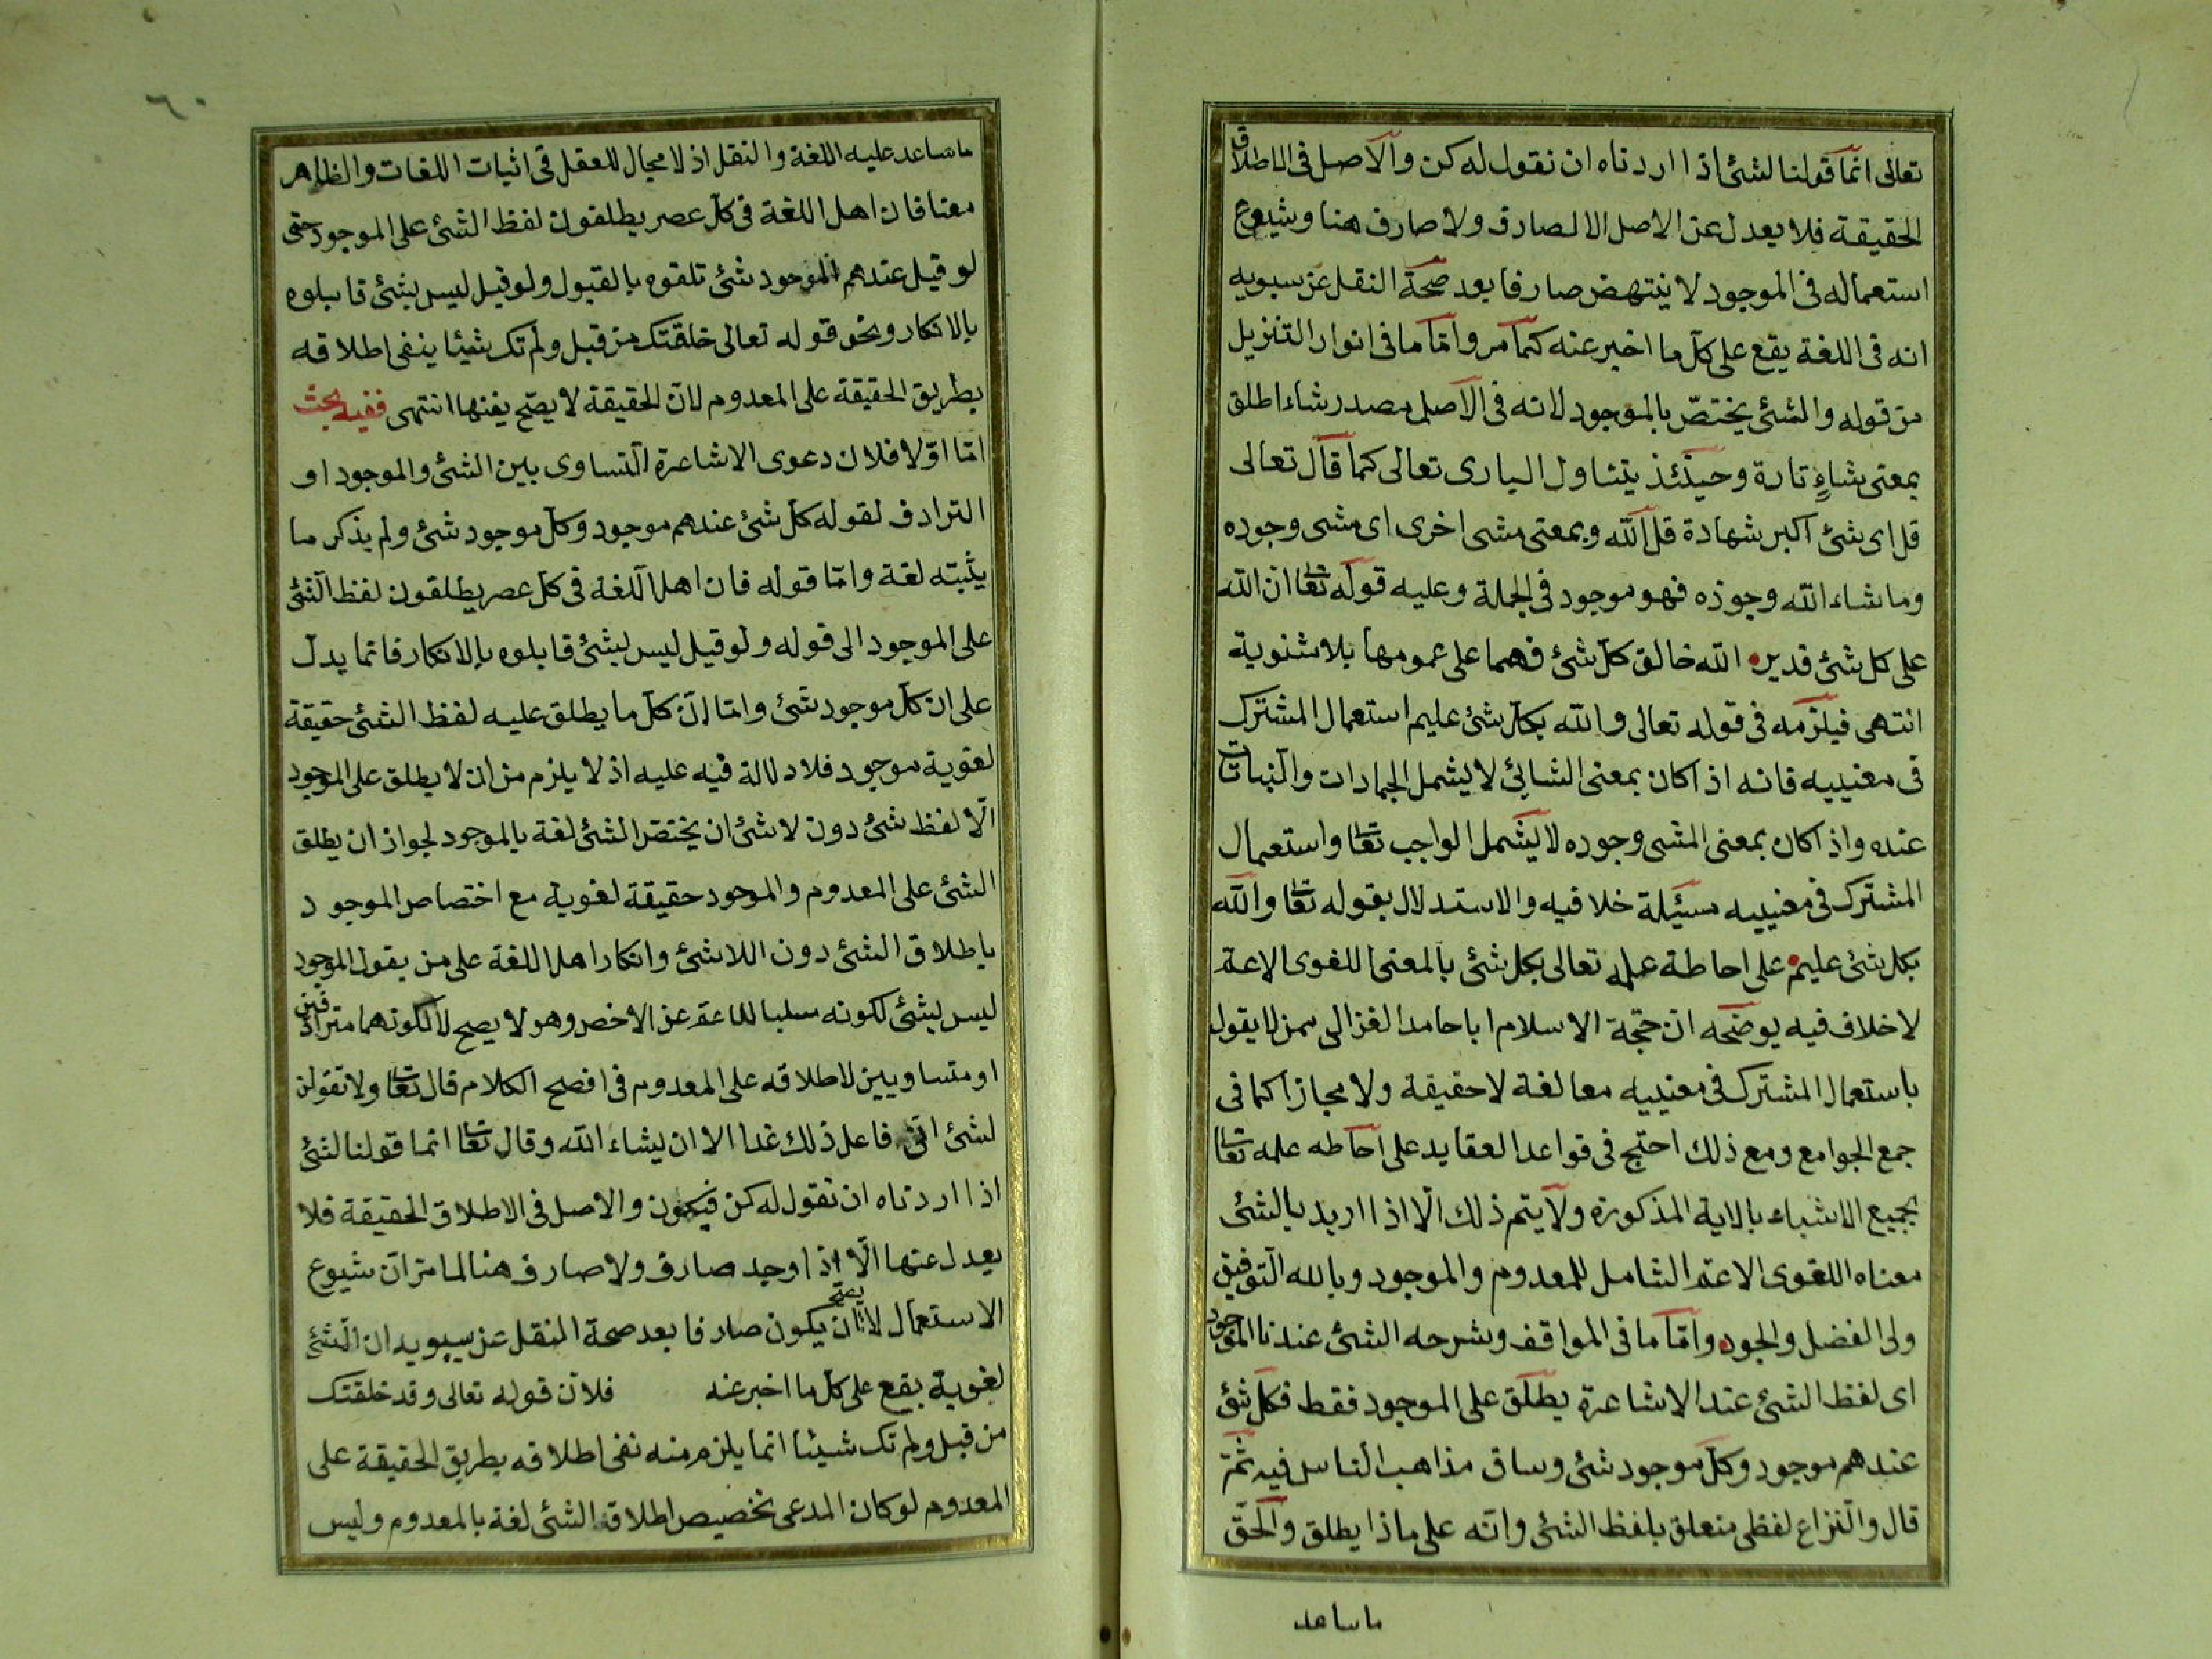 تعالى انما قولنا لشئ اذا اردناه ان نقول له كن والاصل فى الاطلاق
الحقيقة فلا يعدل عن الاصل الا لصارف ولا صارف هنا وشيوع
استعماله فى الموجود لا ينتهض صارفا بعد صحة النقل عن سيبويه
انه فى اللغة يقع على كل ما اخبر عنه كما مر واما ما فى انوار التنزيل
من قوله والشئ يختص بالموجود لانه فى الاصل مصدر شاء اطلق
بمعنى شاءٍ تارة وحينئذ يتناول البارى تعالى كما قال تعالى
قل اى شئ اكبر شهادة قل الله وبمعنى مشى اخرى اى مشى وجوده
وما شاء الله وجوده فهو موجود فى الجملة وعليه قوله تعا ان الله
على كل شئ قدير الله خالق كل شئ فهما على عمومها بلا مثنوية
انتهى فيلزمه فى قوله تعالى والله بكل شئ عليم استعمال المشترك
فى معنييه فانه اذا كان بمعنى الشائئ لا يشمل الجمادات والنباتات
عنده واذا كان بمعنى المشى وجوده لا يشمل الواجب تعا واستعمال
المشترك فى معنييه مسئلة خلافيه والاستدلال بقوله تعا والله
بكل شئ عليم على احاطة علمه تعالى بكل شئ بالمعنى اللغوى الاعم
لا خلاف فيه يوضحه ان حجة الاسلام ابا حامد الغزالى ممن لا يقول
باستعمال المشترك فى معنييه معا لغة لا حقيقة ولا مجازا كما فى
جمع الجوامع ومع ذلك احتج فى قواعد العقايد على احاطه علمه تعا
بجميع الاشياء بالاية المذكورة ولا يتم ذلك الا اذا اريد بالشئ
معناه اللغوى الاعم الشامل للمعدوم والموجود وبالله التوفيق
ولى الفضل والجود واما ما فى المواقف وشرحه الشئ عندنا الموجود
اى لفظ الشئ عند الاشاعرة يطلق على الموجود فقط فكل شئ
عندهم موجود وكل موجود شئ وساق مذاهب الناس فيه ثم
قال والنزاع لفظى متعلق بلفظ الشئ وانه على ماذا يطلق والحق
ما ساعد
٦٠
ما ساعد عليه اللغة والنقل اذ لا مجال للعقل فى اثبات اللغات والظاهر
معنا فان اهل اللغة فى كل عصر يطلقون لفظ الشئ على الموجود حتى
لو قيل عندهم الموجود شئ تلقوه بالقبول ولو قيل ليس بشئ قابلوه
بالانكار ونحو قوله تعالى خلقتك من قبل ولم تك شيئا ينفى اطلاقه
بطريق الحقيقة على المعدوم لان الحقيقة لا يصح نفيها انتهى ففيه بحث
اما اولا فلان دعوى الاشاعرة التساوى بين الشئ والموجود او
الترادف لقوله كل شئ عندهم موجود وكل موجود شئ ولم يذكر ما
يثبته لغة واما قوله فان اهل اللغة فى كل عصر يطلقون لفظ الشئ
على الموجود الى قوله ولو قيل ليس بشئ قابلوه بالانكار فانما يدل
على ان كل موجود شئ واما ان كل ما يطلق عليه لفظ الشئ حقيقة
لغوية موجود فلا دلالة فيه عليه اذ لا يلزم من ان لا يطلق على الموجود
الا لفظ شئ دون لا شئ ان يختص الشئ لغة بالموجود لجواز ان يطلق
الشئ على المعدوم والموجود حقيقة لغوية مع اختصاص الموجود
باطلاق الشئ دون اللاشئ وانكار اهل اللغة على من يقول الموجود
ليس بشئ لكونه سلبا للاعم عن الاخص وهو لا يصح لا لكونهما مترادفين
او متساويين لاطلاقه على المعدوم فى افصح الكلام قال تعا ولا تقولن
لشئ انى فاعل ذلك غدا الا ان يشاء الله وقال تعا انما قولنا لشئ
اذا اردناه ان نقول له كن فيكون والاصل فى الاطلاق الحقيقة فلا
يعدل عنها الا اذا وجد صارف ولا صارف هنا لما مر ان شيوع
الاستعمال لا يصح ان يكون صارفا بعد صحة النقل عن سيبويه ان الشئ
لغوية يقع على كل ما اخبر عنه فلان قوله تعالى وقد خلقتك
من قبل ولم تك شيئا انما يلزم منه نفى اطلاقه بطريق الحقيقة على
المعدوم لو كان المدعى تخصيص اطلاق الشئ لغة بالمعدوم وليس